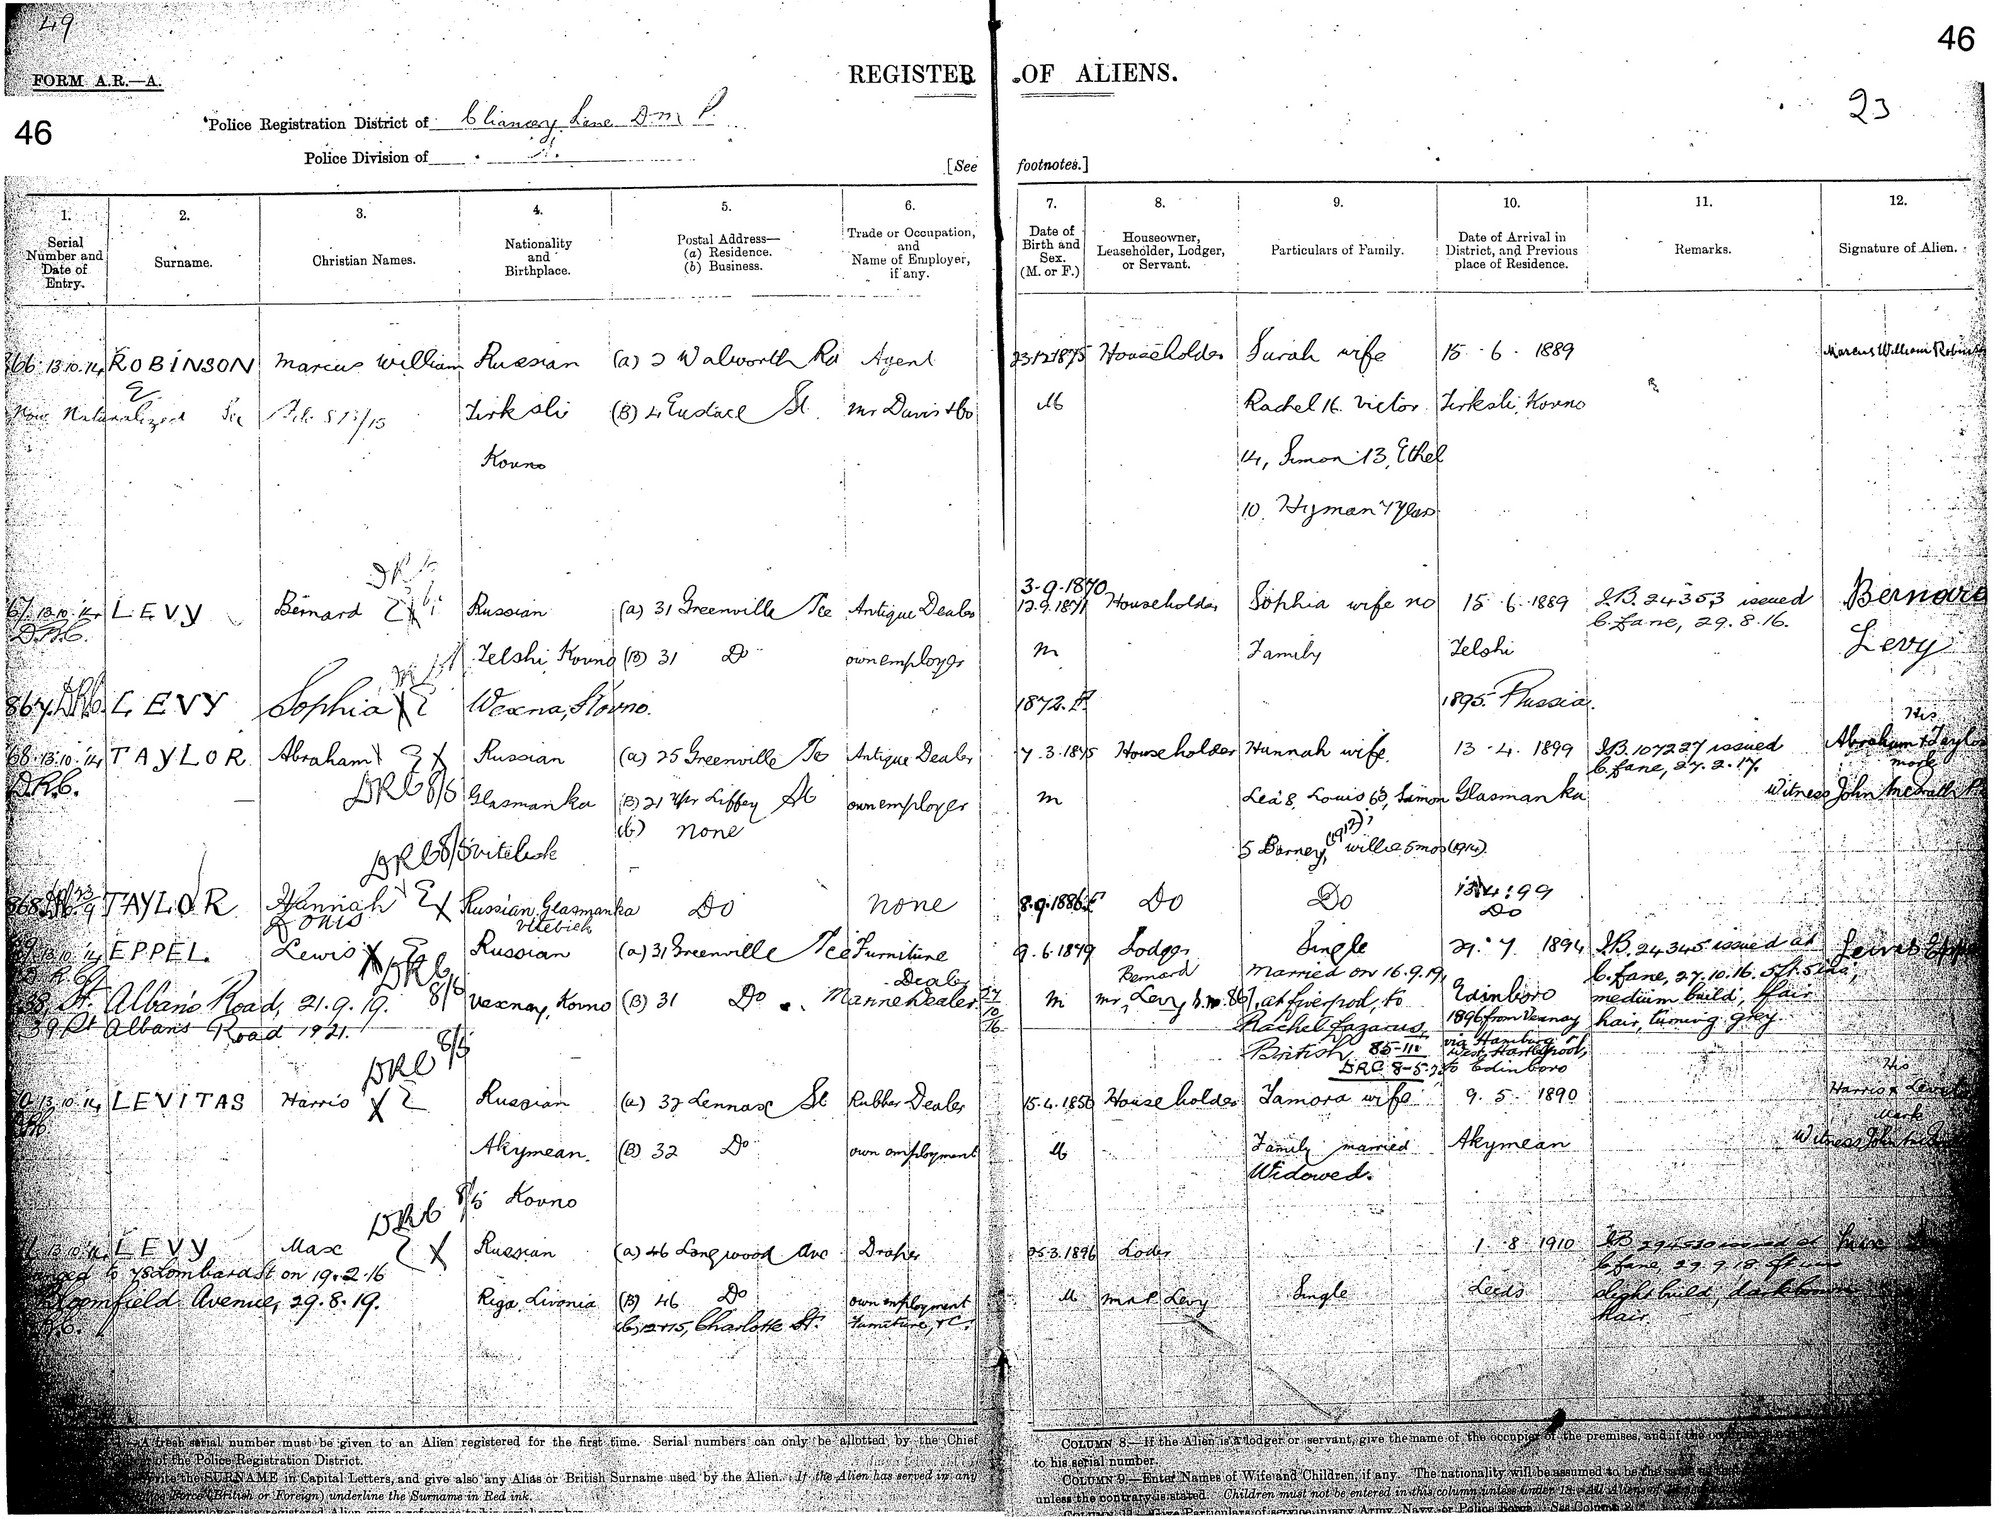 49
46
FORM A.R.—A.
REGISTER OF ALIENS.
23
46
Police Registration District of Chancery Lane D.M.P.
Police Division of
[See footnotes.]
1. 2. 3. 4. 5. 6. 7. 8. 9. 10. 11. 12.
Serial Number and Date of Entry.
Surname.
Christian Names.
Nationality and Birthplace.
Postal Address— (a) Residence. (b) Business.
Trade or Occupation, and Name of Employer, if any.
Date of Birth and Sex. (M. or F.)
Houseowner, Leaseholder, Lodger, or Servant.
Particulars of Family.
Date of Arrival in District, and Previous place of Residence.
Remarks.
Signature of Alien.
866 13.10.14 ROBINSON Marcus William Russian (a) 2 Walworth Rd Agent 23.12.1875 Householder Sarah wife 15-6-1889 Marcus William Robinson
Now Naturalized See Kovno (B) 4 Eustace St. Mr Davis & Co M Rachel 16. Victor Kovno
Kovno 14, Simon 13, Ethel
10 Hyman 7 years
3-9-1870
67 13.10.14 LEVY Bernard Russian (a) 31 Greenville Tce Antique Dealer 12.9.1871 Householder Sophia wife no 15-6-1889 I.B. 24353 issued Bernard
C. Lane, 29.8.16.
Telshi, Kovno (B) 31 Do own employer M Family Telshi Levy
867 LEVY Sophia X Wexna, Kovno. 1872. F. 1895. Russia.
His
68 13.10.14 TAYLOR Abraham X Russian (a) 25 Greenville Tce Antique Dealer 7.3.1875 Householder Hannah wife. 13-4-1899 I.B. 107227 issued Abraham X Taylor
C. Lane, 27.2.17. mark
DRC 8/5 Glasmanka (B) 21 Upr Liffey St own employer M Lea 8, Louis 6, Simon Glasmanka Witness John McGrath
(b) none
DRC 8/5 Vitebsk 5 Barney, (1912), Willie 5 mos (1914).
868 TAYLOR Hannah X Russian Glasmanka Do none 8.9.1886 F Do Do 13.4.99
Louis Vitebsk Do
13.10.14 EPPEL. Lewis X Russian (a) 31 Greenville Tce Furniture 9.6.1879 Lodger Single 29-7-1894 I.B. 24345 issued at Lewis Eppel
DRC 8/5 Dealer Bernard married on 16.9.19, C. Lane, 27.10.16. 5ft.
38, St. Alban's Road, 21.9.19. Vexnay, Kovno (B) 31 Do. Mantle Dealer. 27/10/16 M Mr Levy at Liverpool, to Edinboro medium build, fair
39 St Albans Road 1921. Rachel Lazarus, 1896 from Vexnay hair, turning grey.
British, via Hamburg
West Hartlepool,
DRC 8-5 to Edinboro
DRC 8/5 His
13.10.14 LEVITAS Harris X Russian (a) 32 Lennox St Rubber Dealer 15.4.1850 Householder Tamora wife 9.5.1890 Harris X Levitas
Mark
Akymean. (B) 32 Do own employment M Family married Akymean Witness John
Widowed.
DRC 8/5 Kovno
13.10.14 LEVY Max X Russian (a) 46 Longwood Ave Draper 25.3.1896 Lodger 1-8-1910 issued at
to 78 Lombard St on 19.2.16 C. Lane, 29.9.18.
Bloomfield Avenue, 29.8.19. Riga, Livonia (B) 46 Do own employment M Mrs P. Levy Single Leeds slight build, dark brown
(b) 12 & 15, Charlotte St. Furniture, &c. hair.
A fresh serial number must be given to an Alien registered for the first time. Serial numbers can only be allotted by the Chief
of the Police Registration District.
Write the SURNAME in Capital Letters, and give also any Alias or British Surname used by the Alien. If the Alien has served in any
Force (British or Foreign) underline the Surname in Red ink.
COLUMN 8.—If the Alien is a lodger or servant, give the name of the occupier of the premises, and if the
to his serial number.
COLUMN 9.—Enter Names of Wife and Children, if any. The nationality will be assumed to be the same
unless the contrary is stated. Children must not be entered in this column unless under 18.